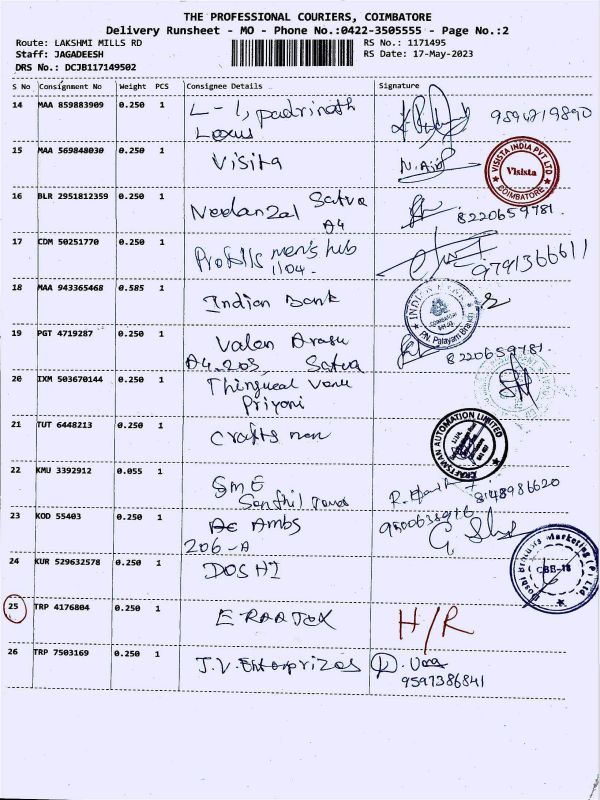 THE PROFESSIONAL COURIERS, COIMBATORE
Delivery Runsheet - MO - Phone No.:0422-3505555 - Page No.:2
Route: LAKSHMI MILLS RD RS No.: 1171495
Staff: JAGADEESH RS Date: 17-May-2023
DRS No.: DCJB117149502
S No Consignment No Weight PCS Consignee Details Signature
14 MAA 859883909 0.250 1 L-1, padrinath
Lexus
15 MAA 569848030 0.250 1 Visista
VISISTA INDIA PVT LTD
Visista
COIMBATORE
16 BLR 2951812359 0.250 1 Satva
A4 8220659781.
17 CDM 50251770 0.250 1 men's hub
1104. 9791366611
18 MAA 943365468 0.585 1 Indian Bank
INDIAN BANK
COIMBATORE
P.N. Palayam Branch
19 PGT 4719287 0.250 1 Valan Arasu
A4.203, Satva 8220659781.
20 IXM 503670144 0.250 1
Priyoni
21 TUT 6448213 0.250 1 Crafts man
CRAFTSMAN AUTOMATION LIMITED
22 KMU 3392912 0.055 1 SME
Senthil 8148986620
23 KOD 55403 0.250 1 Ambs
206-A
24 KUR 529632578 0.250 1 DOSHI
Marketing (P) Ltd
CBE-18
25 TRP 4176804 0.250 1 H/R
26 TRP 7503169 0.250 1 J.V. Enterprizes Uma
9597386841